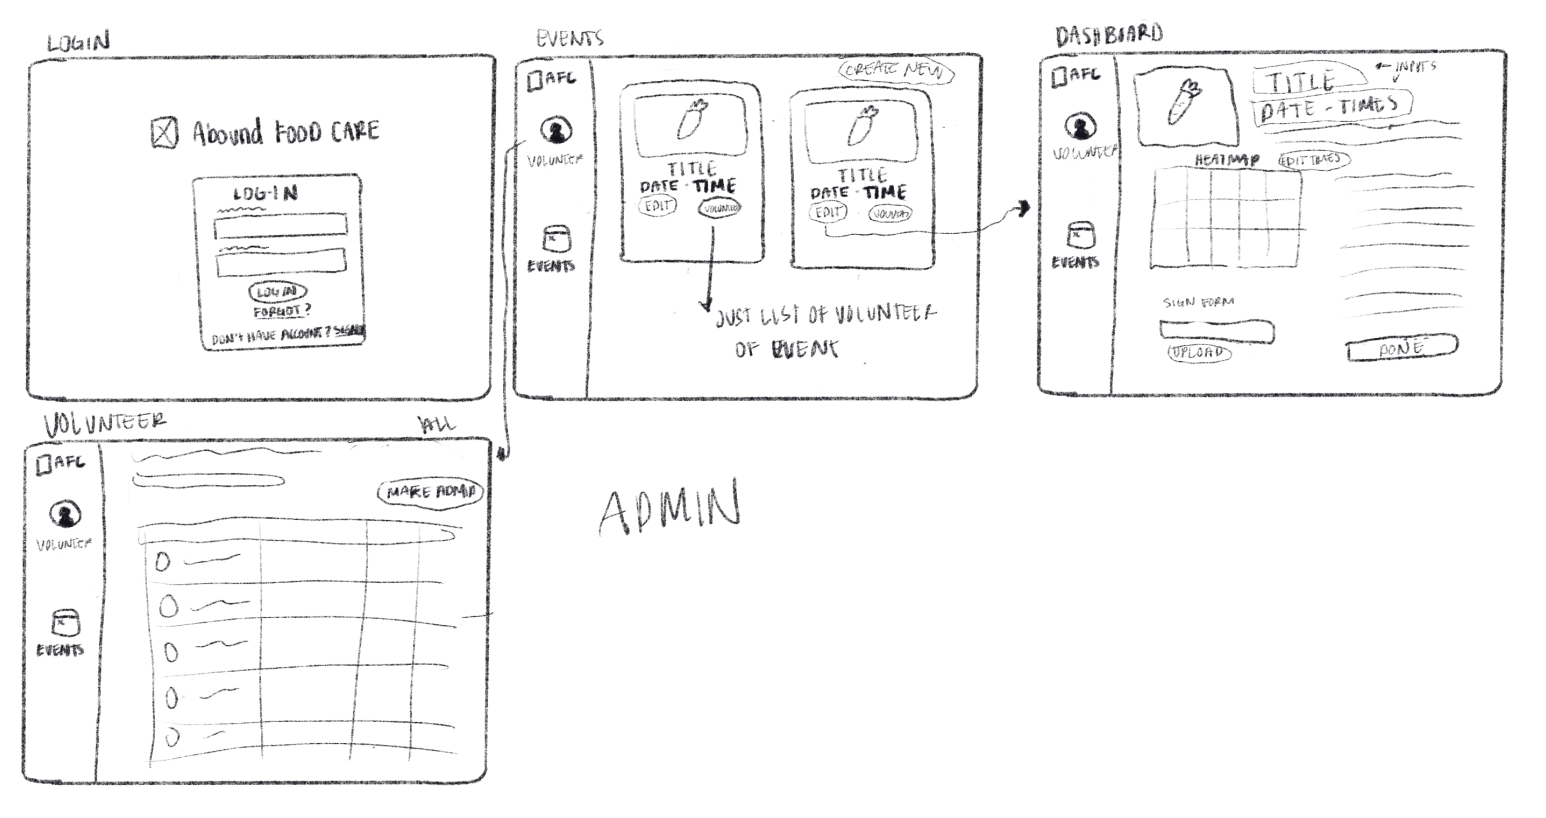 LOGIN
Abound FOOD CARE
LOG-IN
LOG IN
FORGOT?
DON'T HAVE ACCOUNT? SIGN
EVENTS
AFC
VOLUNTER
EVENTS
CREATE NEW
TITLE
DATE - TIME
EDIT
TITLE
DATE - TIME
EDIT
JUST LIST OF VOLUNTEER
OF EVENT
DASHBOARD
AFC
VOLUNTER
EVENTS
TITLE
← INPUTS
DATE - TIMES
HEATMAP
EDIT TIMES
SIGN FORM
UPLOAD
DONE
VOLUNTEER
ALL
AFC
VOLUNTER
EVENTS
MAKE ADMIN
ADMIN